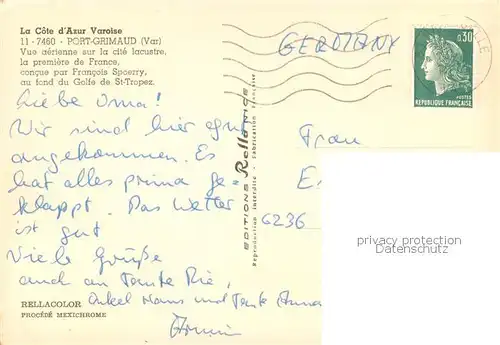 La Côte d'Azur Varoise
11-7460 - PORT-GRIMAUD (Var)
Vue aérienne sur la cité lacustre,
la première de France,
conçue par François Spoerry,
au fond du Golfe de St-Tropez.
Liebe Oma!
Wir sind hier gut
angekommen. Es
hat alles prima ge-
klappt. Das Wetter
ist gut
Viele Grüße
auch an Tante Ria,
Onkel Hans und Tante Anna
Armin
RELLACOLOR
PROCÉDÉ MEXICHROME
EDITIONS Rella NICE
Reproduction interdite - Fabrication Française
GERMANY
0,30
POSTES
REPUBLIQUE FRANÇAISE
Frau
E
6236
privacy protection
Datenschutz